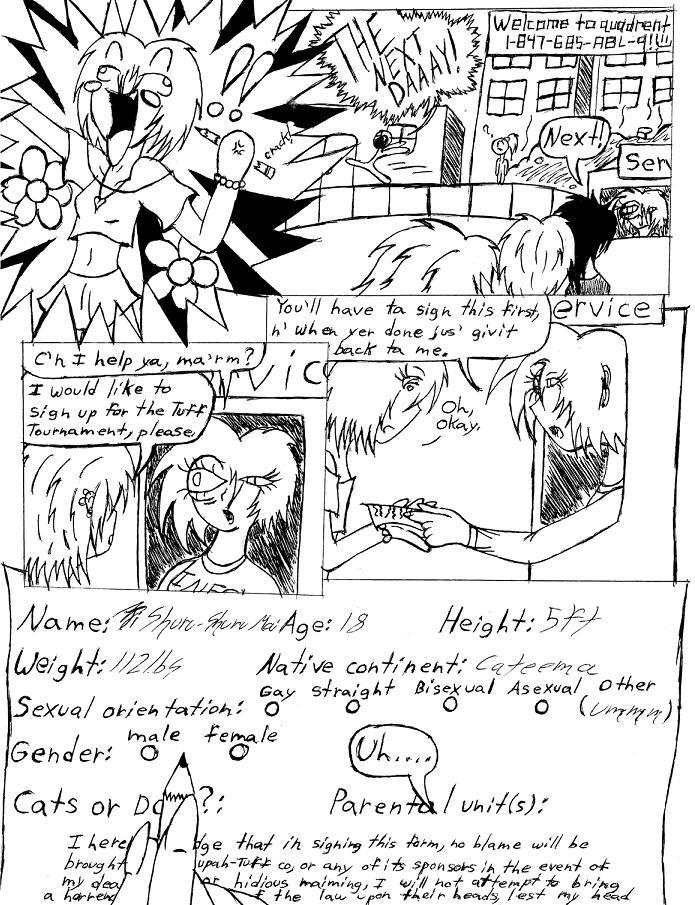 THE
NEXT
DAAAY!
Welcome to quadrent
1-847-685-ABL-9!!!!
Next!
Ser
C'n I help ya, ma'rm?
I would like to
sign up for the Tuff
Tournament, please.
vice
You'll have ta sign this first,
n' when yer done jus' givit
back ta me.
ervice
Oh,
okay.
Name: Shuru-Shuru Mai Age: 18 Height: 5ft
Weight: 112lbs Native continent: Cateema
Gay straight Bisexual Asexual other
Sexual orientation: (Ummm)
male female
Gender:
Uh....
Cats or Do ?: Parental unit(s):
I here dge that in signing this form, no blame will be
brought upah-Tuff co, or any of its sponsors in the event of
my dea or hidious maiming, I will not attempt to bring
a horrend f the law upon their heads, lest my head